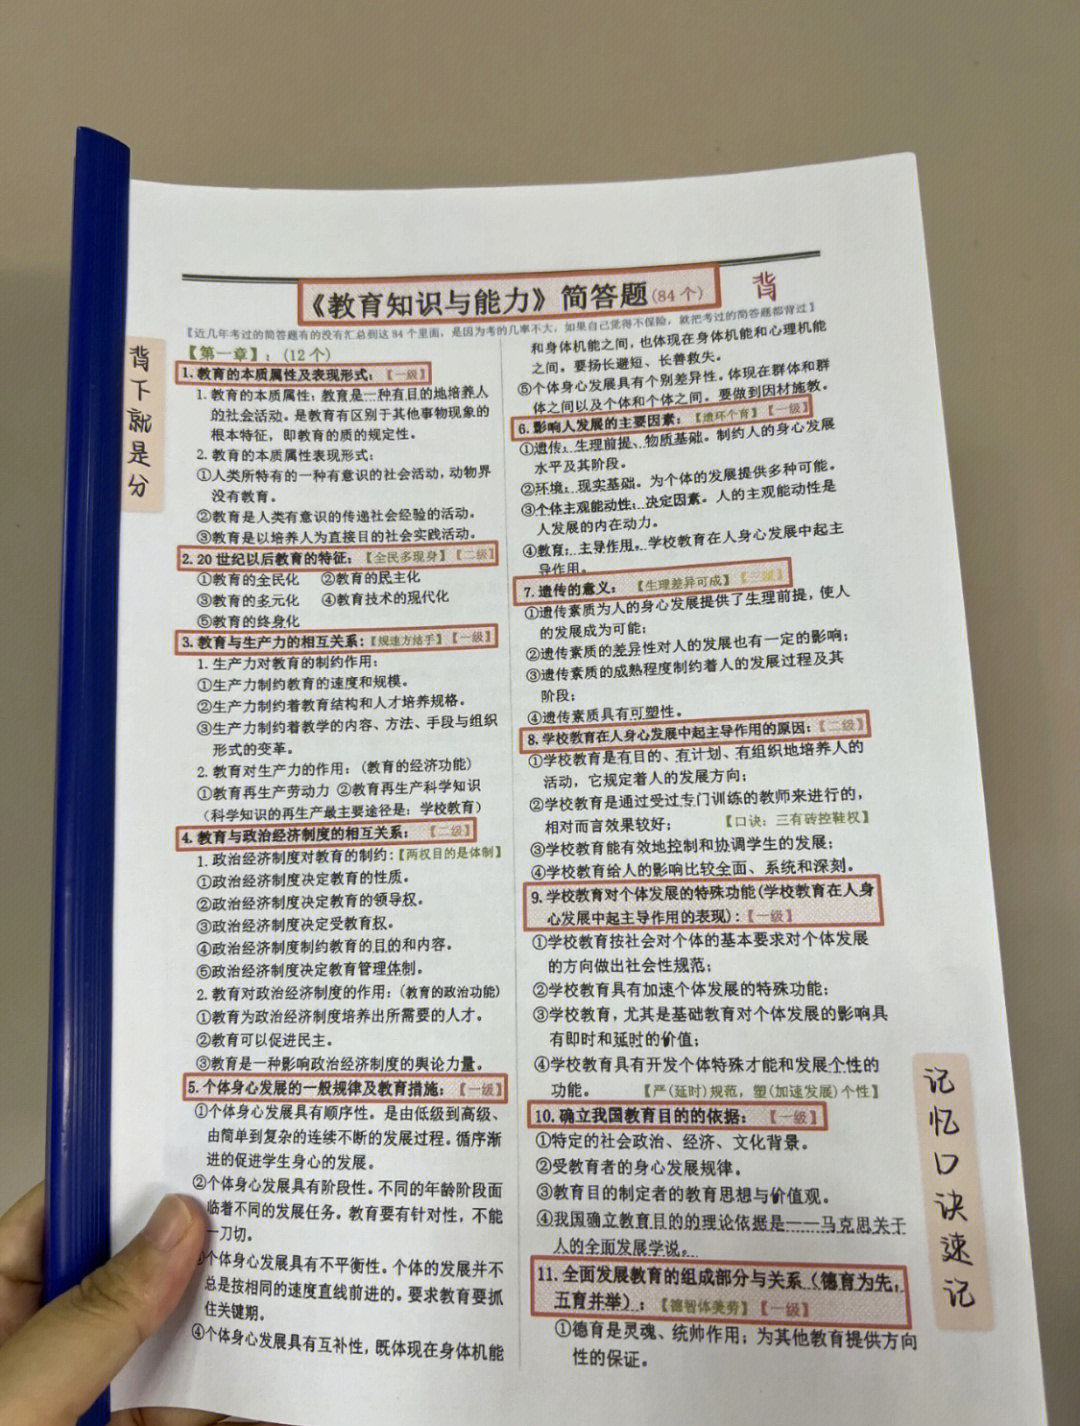 《教育知识与能力》简答题(84个)
背
【近几年考过的简答题有的没有汇总到这84个里面，是因为考的几率不大，如果自己觉得不保险，就把考过的简答题都背过】
背下就是分
【第一章】：(12个)
1. 教育的本质属性及表现形式：【一级】
1. 教育的本质属性：教育是一种有目的地培养人
的社会活动。是教育有区别于其他事物现象的
根本特征，即教育的质的规定性。
2. 教育的本质属性表现形式：
①人类所特有的一种有意识的社会活动，动物界
没有教育。
②教育是人类有意识的传递社会经验的活动。
③教育是以培养人为直接目的社会实践活动。
2. 20世纪以后教育的特征：【全民多现身】【二级】
①教育的全民化 ②教育的民主化
③教育的多元化 ④教育技术的现代化
⑤教育的终身化
3. 教育与生产力的相互关系：【规速方结手】【一级】
1. 生产力对教育的制约作用：
①生产力制约教育的速度和规模。
②生产力制约着教育结构和人才培养规格。
③生产力制约着教学的内容、方法、手段与组织
形式的变革。
2. 教育对生产力的作用：(教育的经济功能)
①教育再生产劳动力 ②教育再生产科学知识
(科学知识的再生产最主要途径是：学校教育)
4. 教育与政治经济制度的相互关系：【二级】
1. 政治经济制度对教育的制约：【两权目的是体制】
①政治经济制度决定教育的性质。
②政治经济制度决定教育的领导权。
③政治经济制度决定受教育权。
④政治经济制度制约教育的目的和内容。
⑤政治经济制度决定教育管理体制。
2. 教育对政治经济制度的作用：(教育的政治功能)
①教育为政治经济制度培养出所需要的人才。
②教育可以促进民主。
③教育是一种影响政治经济制度的舆论力量。
5. 个体身心发展的一般规律及教育措施：【一级】
①个体身心发展具有顺序性。是由低级到高级、
由简单到复杂的连续不断的发展过程。循序渐
进的促进学生身心的发展。
②个体身心发展具有阶段性。不同的年龄阶段面
临着不同的发展任务。教育要有针对性，不能
一刀切。
个体身心发展具有不平衡性。个体的发展并不
总是按相同的速度直线前进的。要求教育要抓
住关键期。
④个体身心发展具有互补性，既体现在身体机能
和身体机能之间，也体现在身体机能和心理机能
之间。要扬长避短、长善救失。
⑤个体身心发展具有个别差异性。体现在群体和群
体之间以及个体和个体之间。要做到因材施教。
6. 影响人发展的主要因素：【遗环个育】【一级】
①遗传：生理前提、物质基础。制约人的身心发展
水平及其阶段。
②环境：现实基础。为个体的发展提供多种可能。
③个体主观能动性：决定因素。人的主观能动性是
人发展的内在动力。
④教育：主导作用。学校教育在人身心发展中起主
导作用。
7. 遗传的意义：【生理差异可成】
①遗传素质为人的身心发展提供了生理前提，使人
的发展成为可能；
②遗传素质的差异性对人的发展也有一定的影响；
③遗传素质的成熟程度制约着人的发展过程及其
阶段；
④遗传素质具有可塑性。
8. 学校教育在人身心发展中起主导作用的原因：【二级】
①学校教育是有目的、有计划、有组织地培养人的
活动，它规定着人的发展方向；
②学校教育是通过受过专门训练的教师来进行的，
相对而言效果较好； 【口诀：三有砖控鞋权】
③学校教育能有效地控制和协调学生的发展；
④学校教育给人的影响比较全面、系统和深刻。
9. 学校教育对个体发展的特殊功能(学校教育在人身
心发展中起主导作用的表现)：【一级】
①学校教育按社会对个体的基本要求对个体发展
的方向做出社会性规范；
②学校教育具有加速个体发展的特殊功能；
③学校教育，尤其是基础教育对个体发展的影响具
有即时和延时的价值；
④学校教育具有开发个体特殊才能和发展个性的
功能。 【严(延时)规范，塑(加速发展)个性】
10. 确立我国教育目的的依据：【一级】
①特定的社会政治、经济、文化背景。
②受教育者的身心发展规律。
③教育目的制定者的教育思想与价值观。
④我国确立教育目的的理论依据是——马克思关于
人的全面发展学说。
11. 全面发展教育的组成部分与关系（德育为先，
五育并举）：【德智体美劳】【一级】
①德育是灵魂、统帅作用；为其他教育提供方向
性的保证。
记忆口诀速记